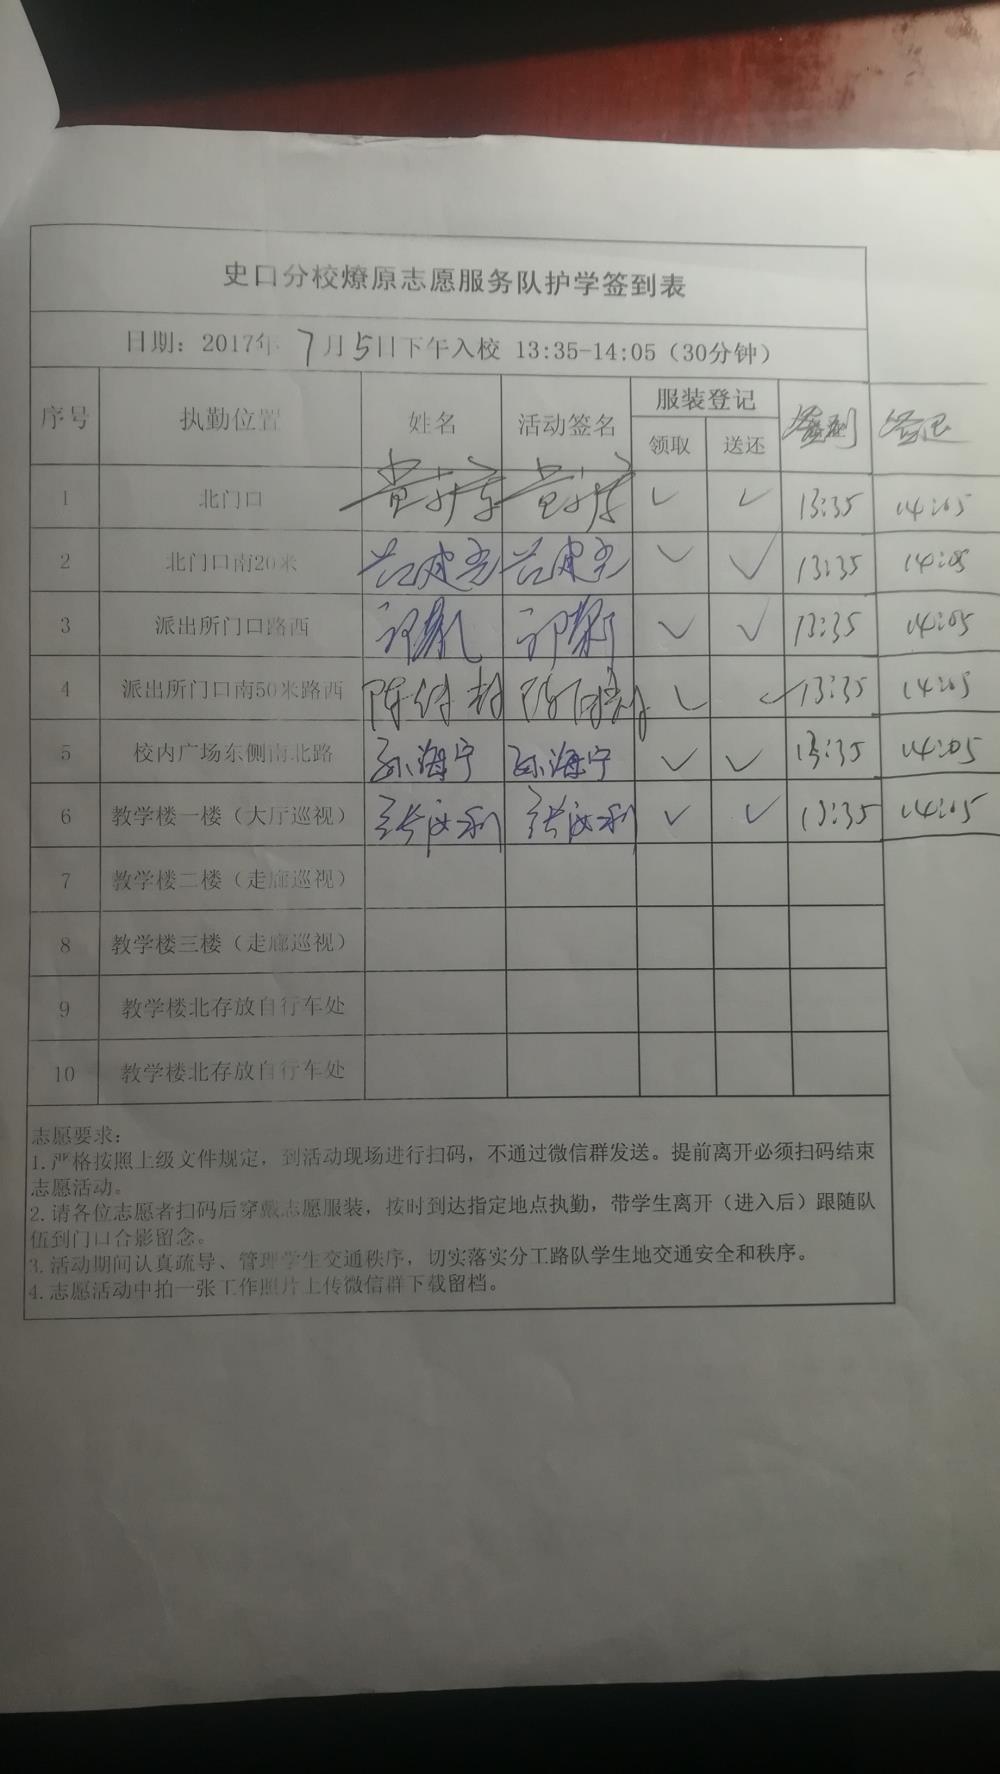 史口分校燎原志愿服务队护学签到表
日期：2017年 7月5日下午入校 13:35-14:05（30分钟）
序号 执勤位置 姓名 活动签名 服装登记 签到 签退
领取 送还
1 北门口 ✓ ✓ 13:35 14:05
2 北门口南20米 ✓ ✓ 13:35 14:05
3 派出所门口路西 ✓ ✓ 13:35 14:05
4 派出所门口南50米路西 ✓ ✓ 13:35 14:05
5 校内广场东侧南北路 孙海宁 孙海宁 ✓ ✓ 13:35 14:05
6 教学楼一楼（大厅巡视） ✓ ✓ 13:35 14:05
7 教学楼二楼（走廊巡视）
8 教学楼三楼（走廊巡视）
9 教学楼北存放自行车处
10 教学楼北存放自行车处
志愿要求：
1.严格按照上级文件规定，到活动现场进行扫码，不通过微信群发送。提前离开必须扫码结束
志愿活动。
2.请各位志愿者扫码后穿戴志愿服装，按时到达指定地点执勤，带学生离开（进入后）跟随队
伍到门口合影留念。
3.活动期间认真疏导、管理学生交通秩序，切实落实分工路队学生地交通安全和秩序。
4.志愿活动中拍一张工作照片上传微信群下载留档。